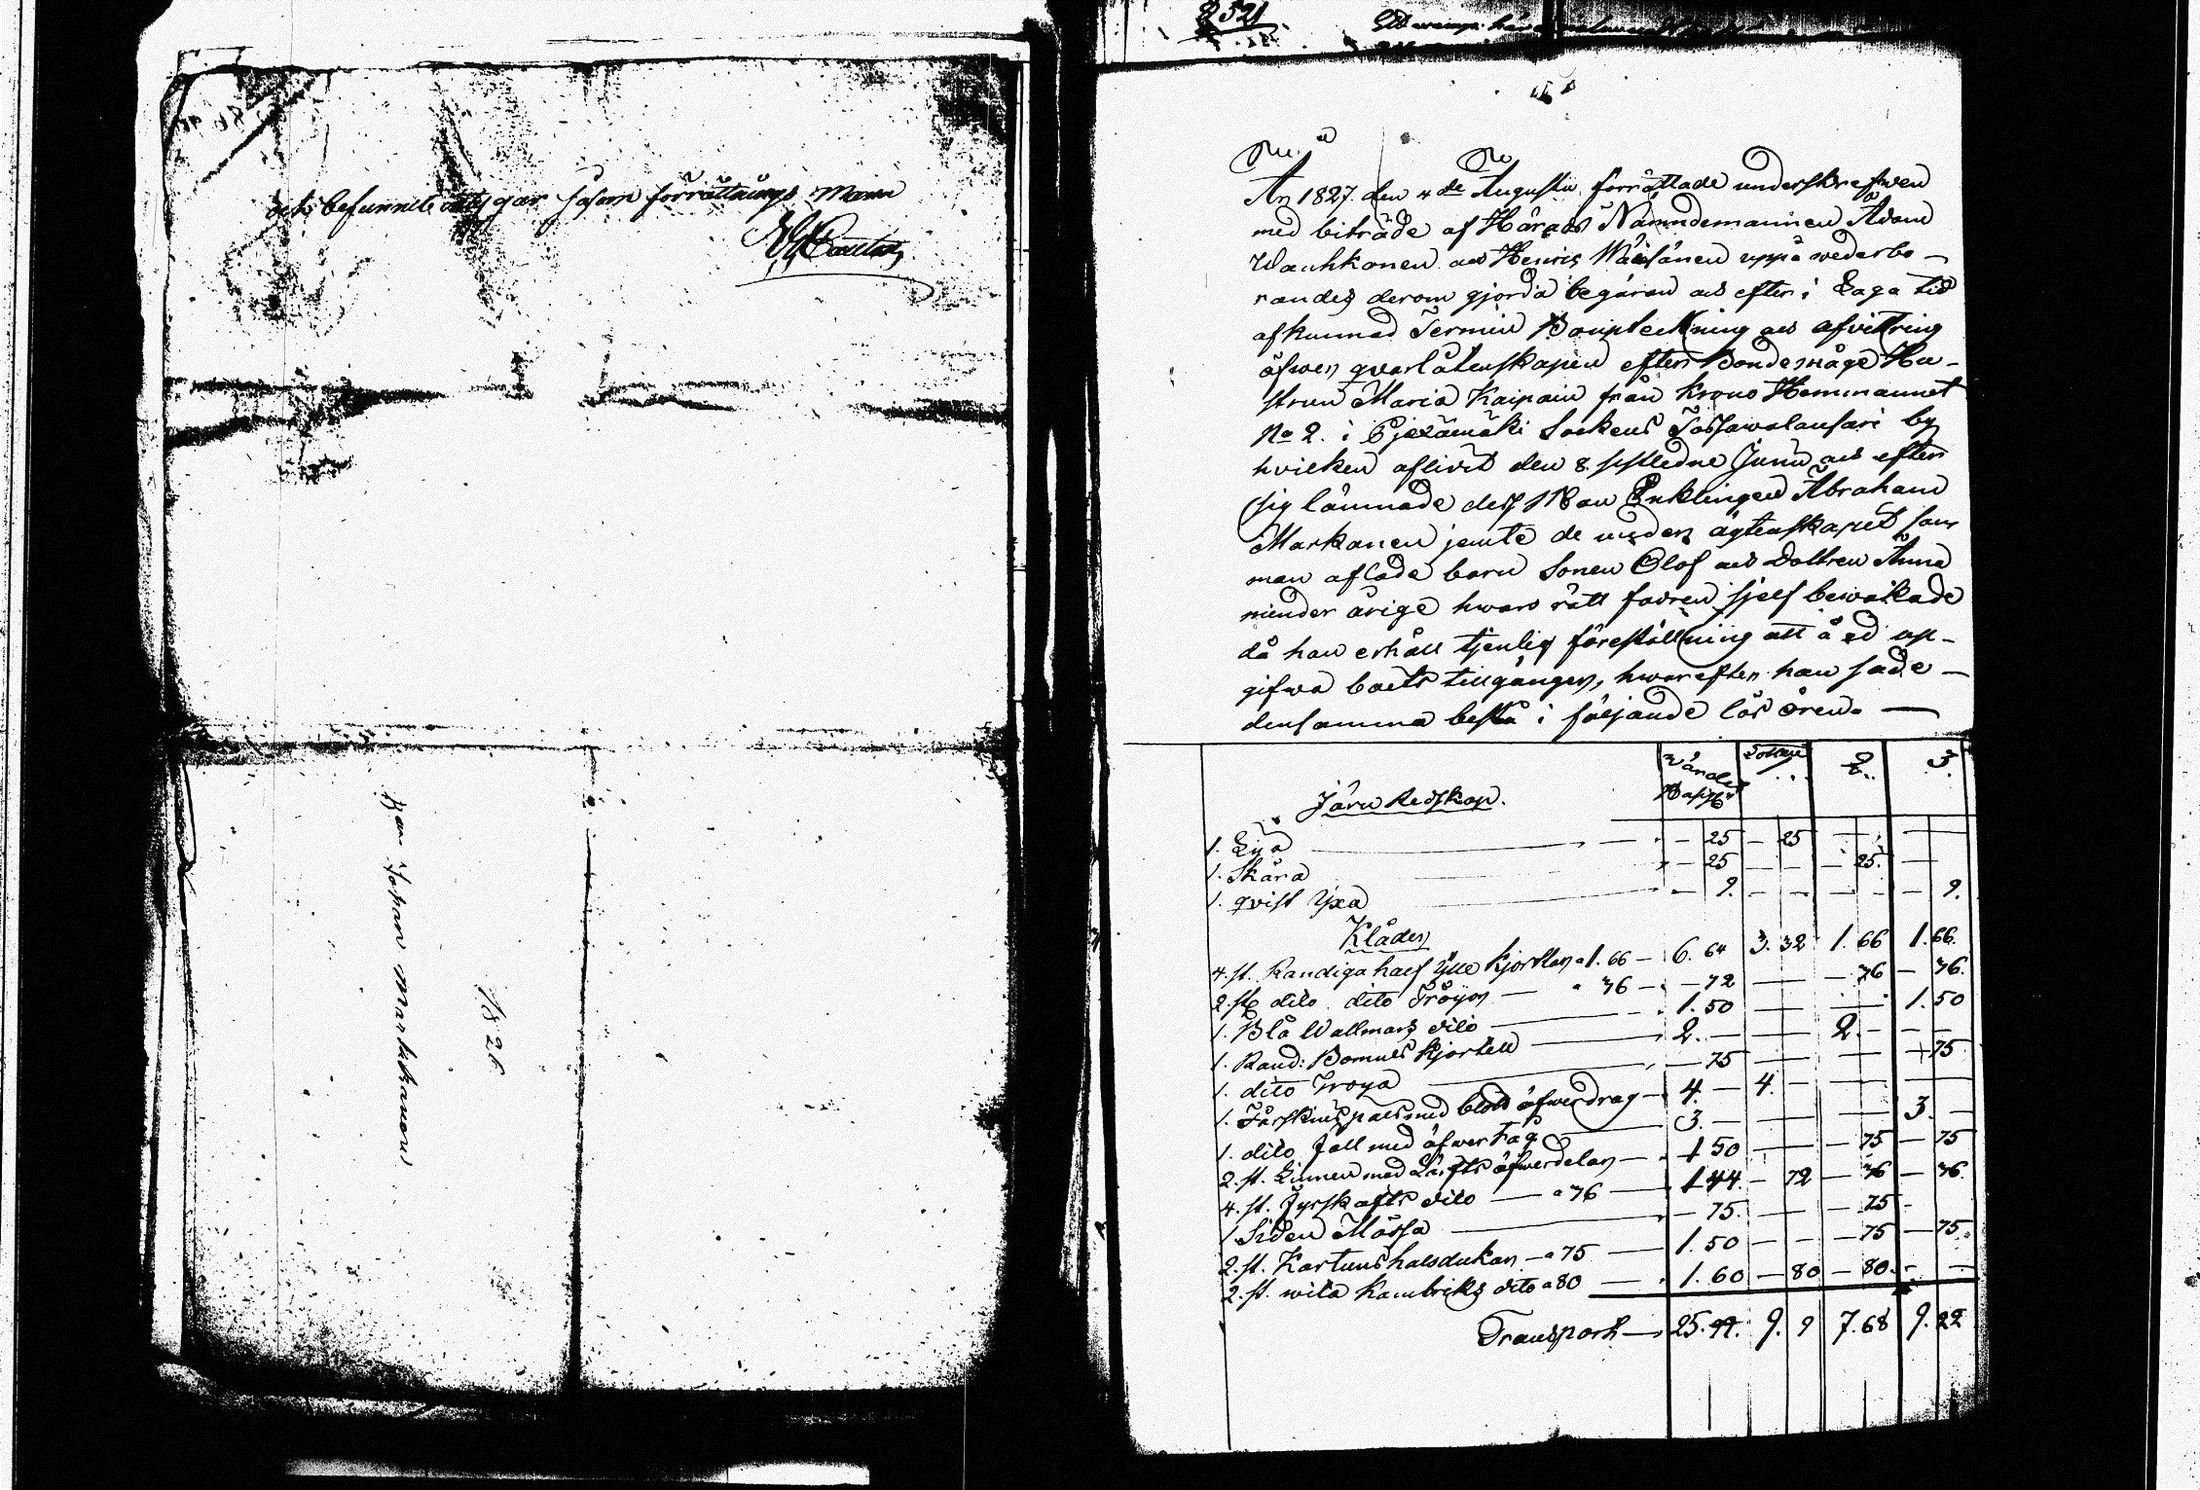 dets befunnite utsy gar såsom förrättnings Mann
Bar Johan Markkanens
1826
8521
År 1827. den 4de Augusti förrättade underskrefwen
med biträde af Härads Nämndemannen Adam
Wauhkonen och Henric Wäisänen uppå wederbo-
randes derom gjorda begäran och efter i Laga tid
afkunnad Termin Boupteckning och afvittring
öfwer qvarlåtenskapen efter Bondemåge Hu-
strun Maria Kaipain från Krono Hemmannet
No 2. i Pjexämäki Sockens by
hvilken aflivit den 8. sistledne Junii och efter
sig lämnade dess Man Enklingen Abraham
Markanen jemte de under ägtenskapet sam
man aflade barn Sonen Olof och Dottren Anna
minder årige hwars rätt fadren sjelf bewakade
då han erhöll tjenlig föreställning att å ed up-
gifwa boets tillgångar, hwarefter han sade -
densamma bestå i följande lös ören. —
Järn Redskap. Wärdet 2. 3.
1. Lija — 25 — 25
1. Skära — 25 — 25.
1. qvist Yxa — 9. — 9.
Kläder
4. st. Randiga half Ylle Kjortlar a 1.66 — 6. 64 3. 32 1. 66 1. 66.
2. st. dito dito Tröyor — " 36 — 72 — 36 — 36.
1. Blå Wallmars dito — 1. 50 — 1. 50
1. Rand: Bomuls Kjortell — 2. — 2. —
1. dito Troya — 75 — 75
1. Fårskins päls med blått öfwerdrag — 4. — 4. —
1. dito fäll med öfwer Tag — 3. — 3. —
2. st. Linnen med Lärfts öfwerdelar — 1 50 — 75 — 75
4. st. Fyrskafts dito — a 36 — 1 44. — 72 — 36 — 36.
1 Siden Mössa — 75. — 75 -
2. st. Kartuns halsdukar — a 75 — 1. 50 — 75 — 75.
2. st. wita Kambriks dito a 80 — 1. 60 — 80 — 80. —
Transport — 25. 99. 9. 9 7. 68 9. 22